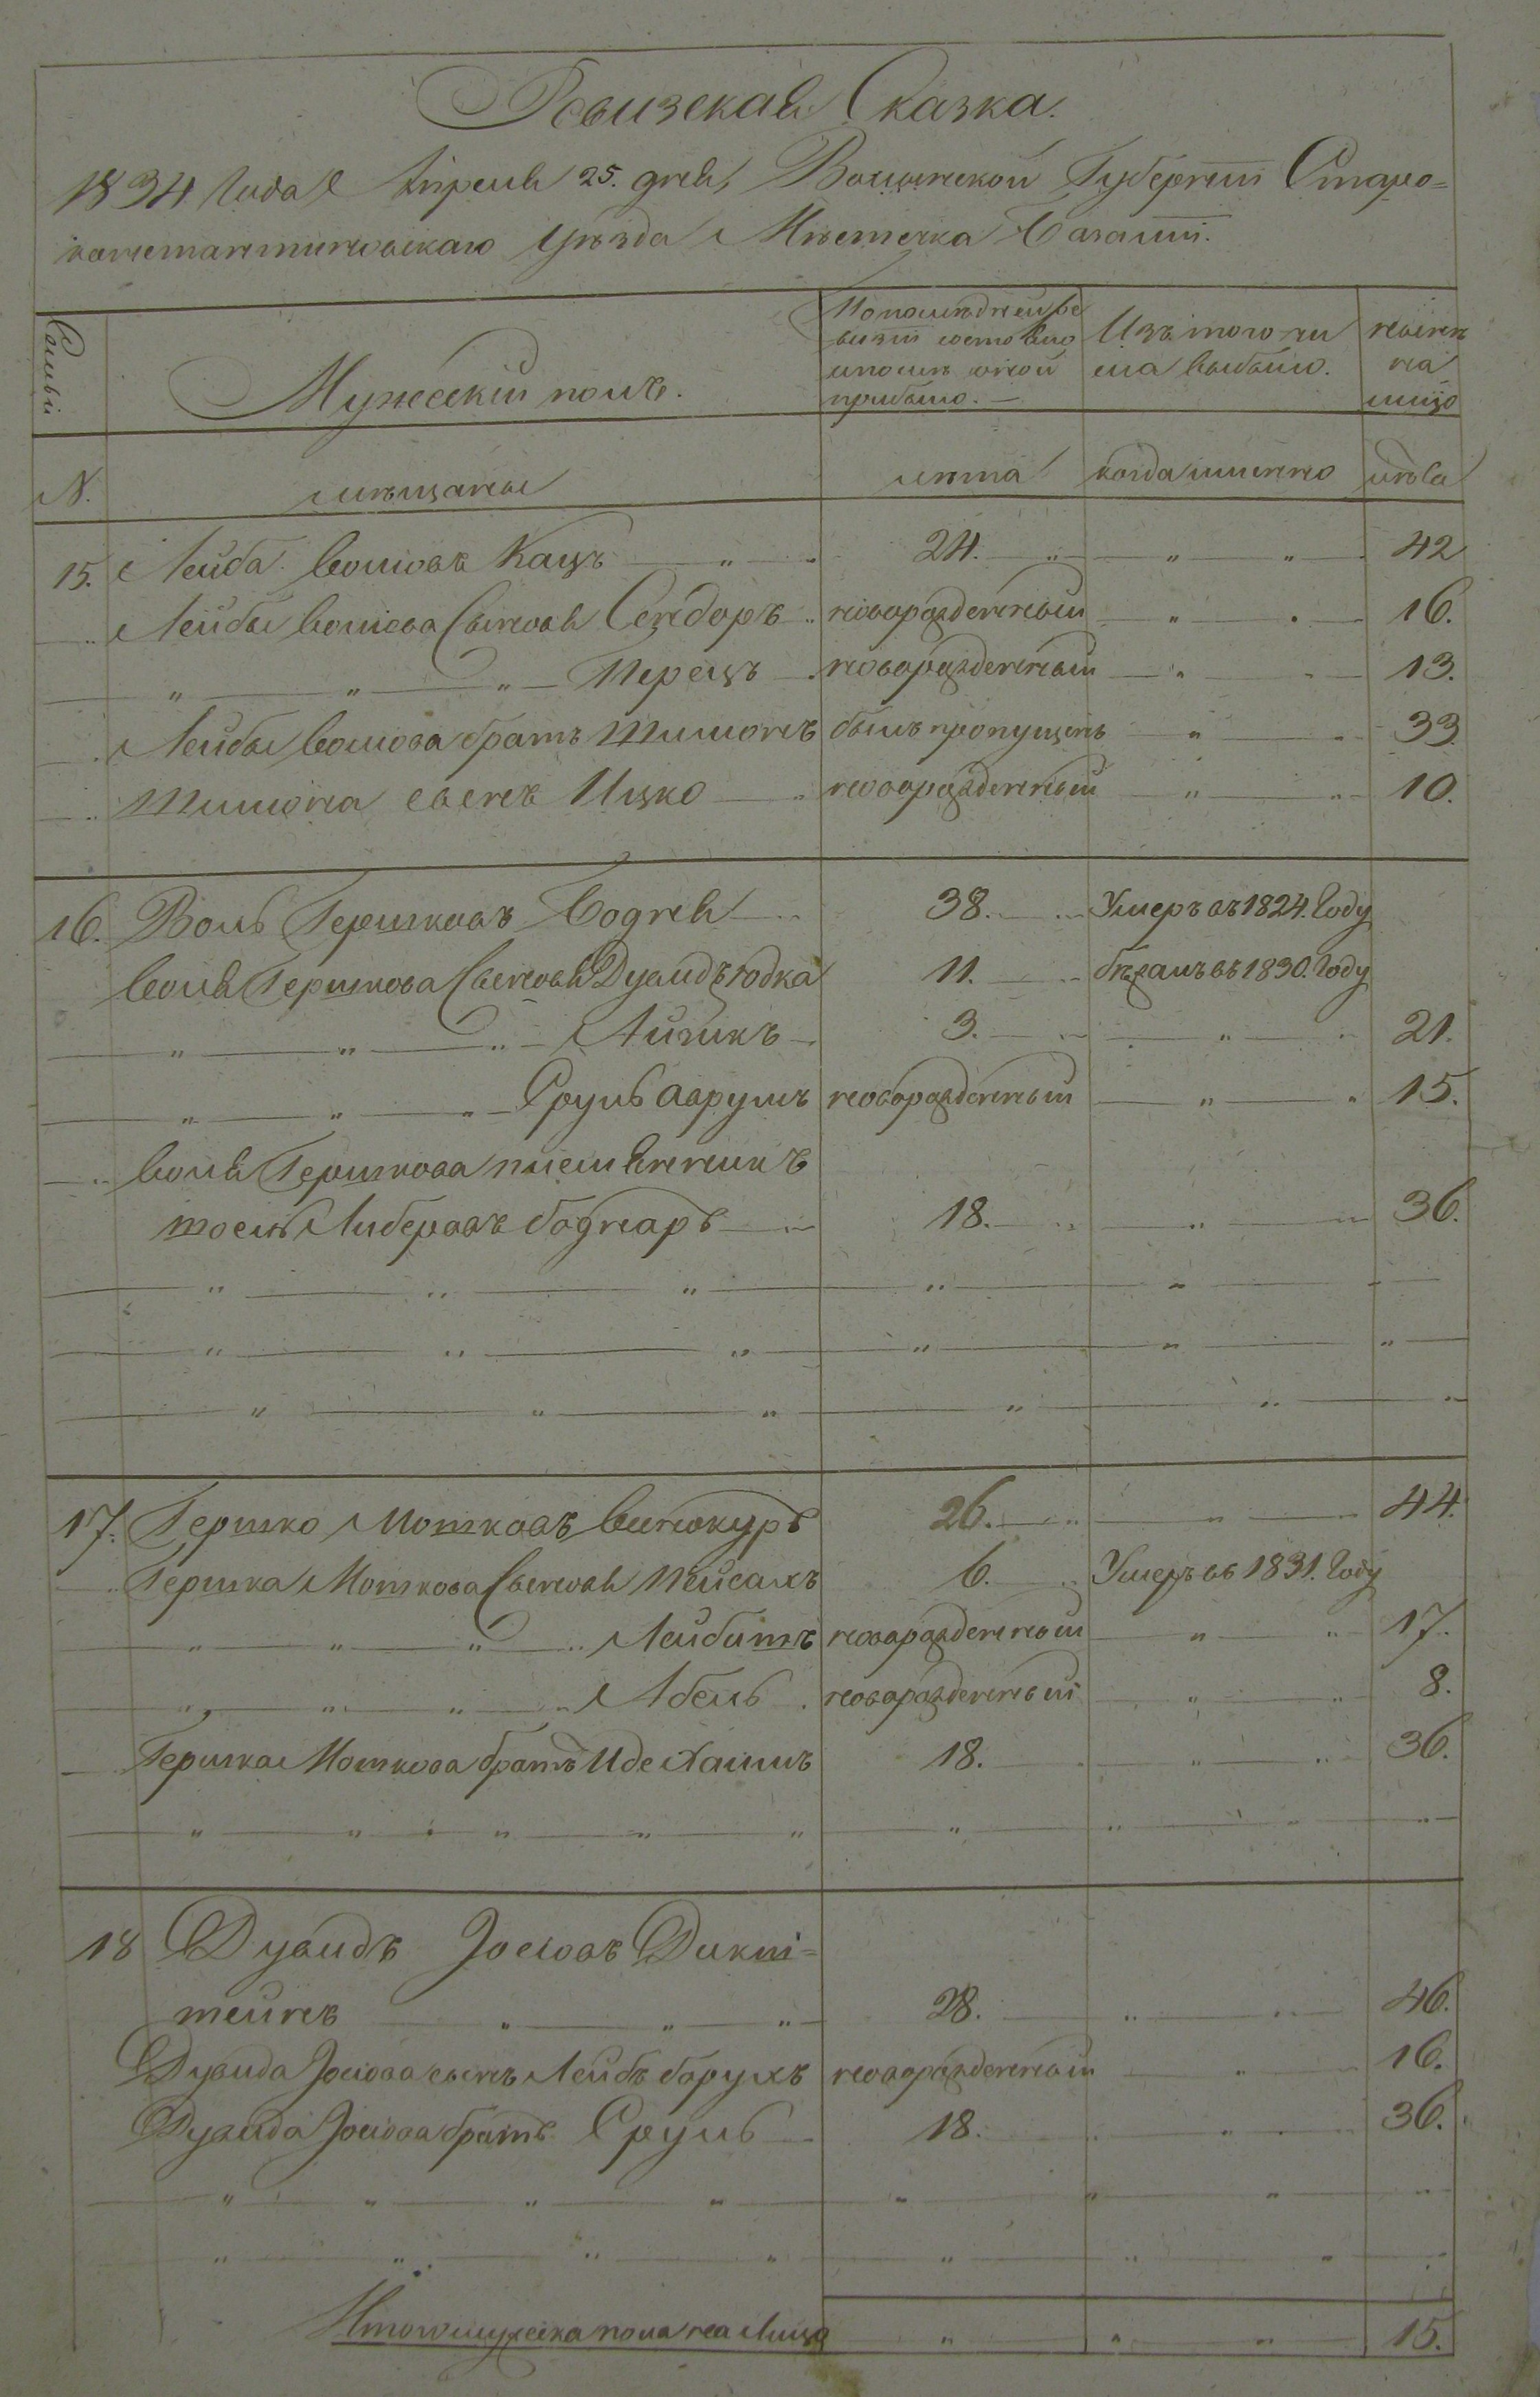 Ревизская Сказка.
1834 Года Апреля 25. дня, Волынской Губернїи Старо=
константиновскаго Уѣзда Мѣстечка Базалїи.
Семьи
Мужескїй полъ.
Попослѣдней ре
визїи состояло
ипослѣ оной
прибыло.
Изъ того чи
сла выбыло.
нынѣ
на
лицо
N.
мѣщаны
лѣта
когда имянно
лѣта
15. Лейба Волковъ Кацъ 24. " " 42
Лейбы Волкова Сыновья Сендоръ новорожденный " 16.
" " " Перецъ новорожденный " 13.
Лейбы Волкова братъ Шимонъ былъ пропущенъ " 33.
Шимона сынъ Ицко новорожденный " 10.
16. Воль Гершковъ Бодня 38. Умеръ въ 1824. Году
Воля Гершкова Сыновья Дувидъ Юдка 11. бѣжалъ въ 1830. Году
" " " Айзикъ 3. " 21.
" " " Сруль Аврумъ новорожденный " 15.
Воля Гершкова племянникъ
Шоель Либеровъ боднаръ 18. " 36.
" " " " " "
" " " " " "
" " " " " "
17. Гершко Мошковъ Винокуръ 26. " 44.
Гершка Мошкова Сыновья Пейсахъ 6. Умеръ въ 1831. Году
" " " Лейбишъ новорожденный " 17.
" " " Абель новорожденный " 8.
Гершка Мошкова братъ Иде Хаимъ 18. " 36.
" " " " " " " "
18 Дувидъ Іосіовъ Дикш=
тейнъ " " " 28. " 46.
Дувида Іосіова сынъ Лейбъ борухъ новорожденный " 16.
Дувида Іосіова братъ Сруль 18. " 36.
" " " " " " " "
" " " " " " "
Итого мужеска пола на Лицо " " " 15.